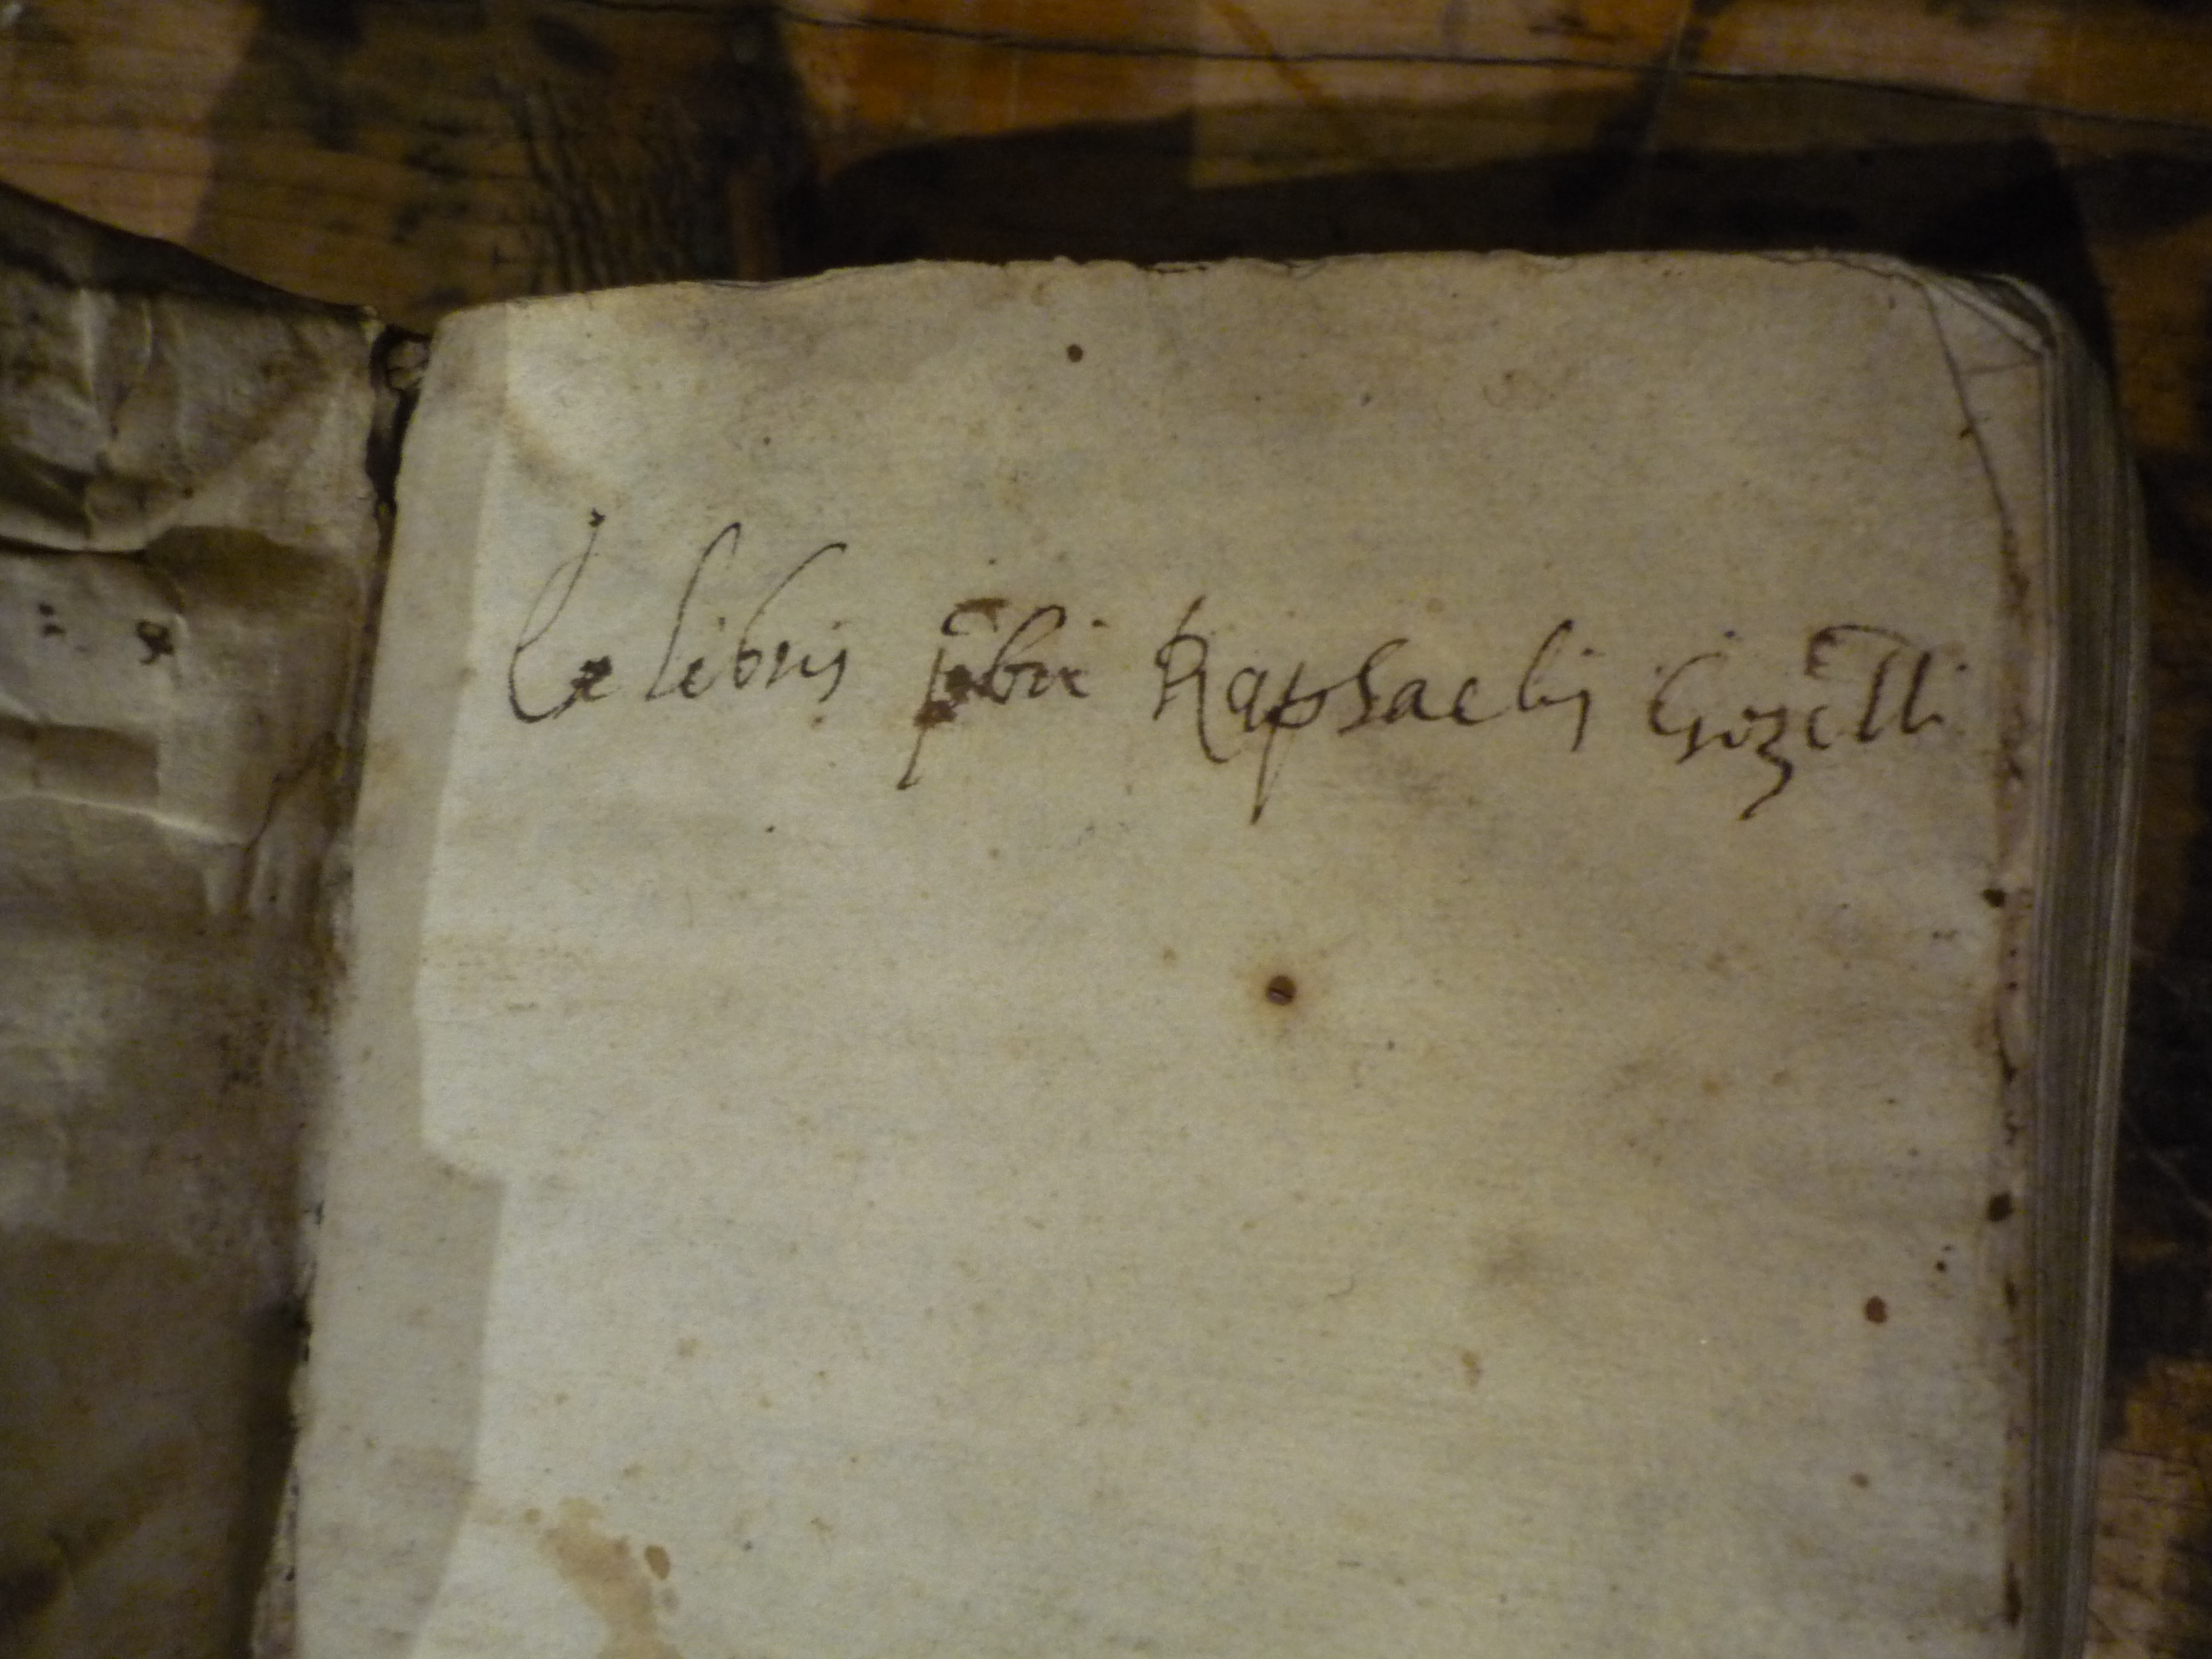 Ex libris p̄bri Raphaelis Gozelli